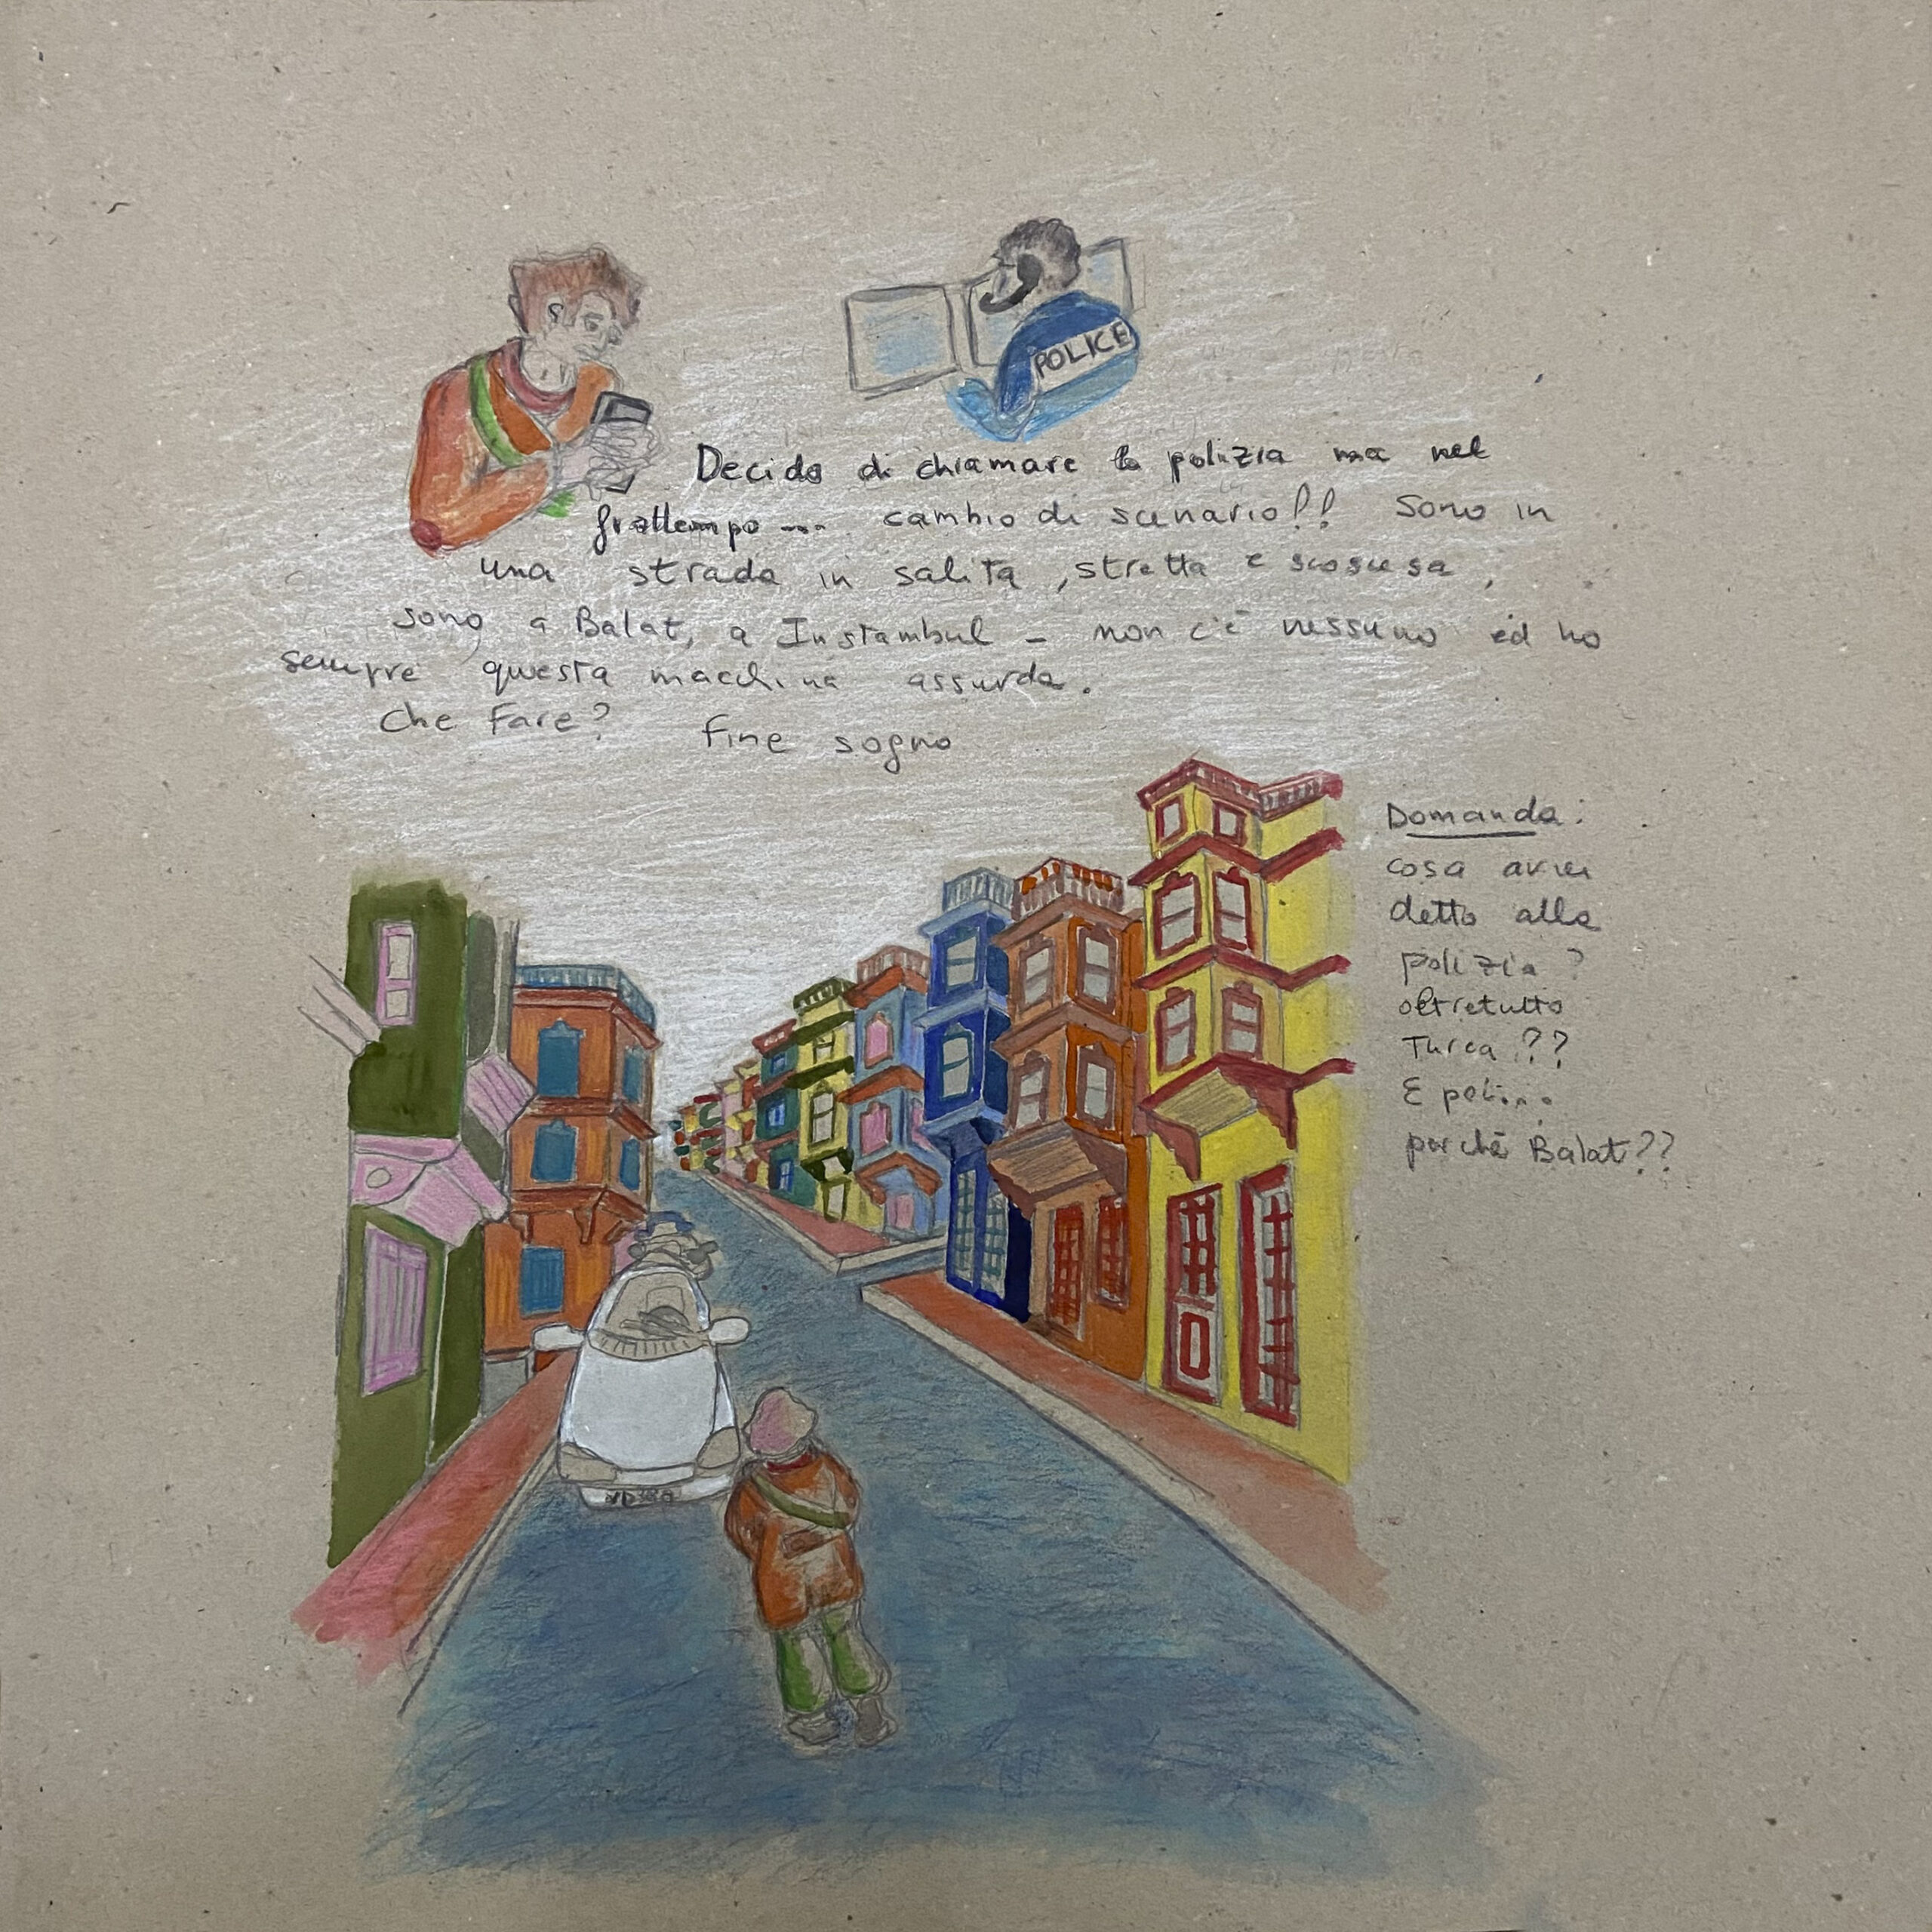 POLICE
Decido di chiamare la polizia ma nel
frattempo --- cambio di scenario!! Sono in
una strada in salita, stretta e scoscesa,
sono a Balat, a Instambul - non c'è nessuno ed ho
sempre questa macchina assurda.
Che fare? Fine sogno
Domanda:
cosa avrei
detto alla
polizia?
oltretutto
Turca??
E poi...
perché Balat??